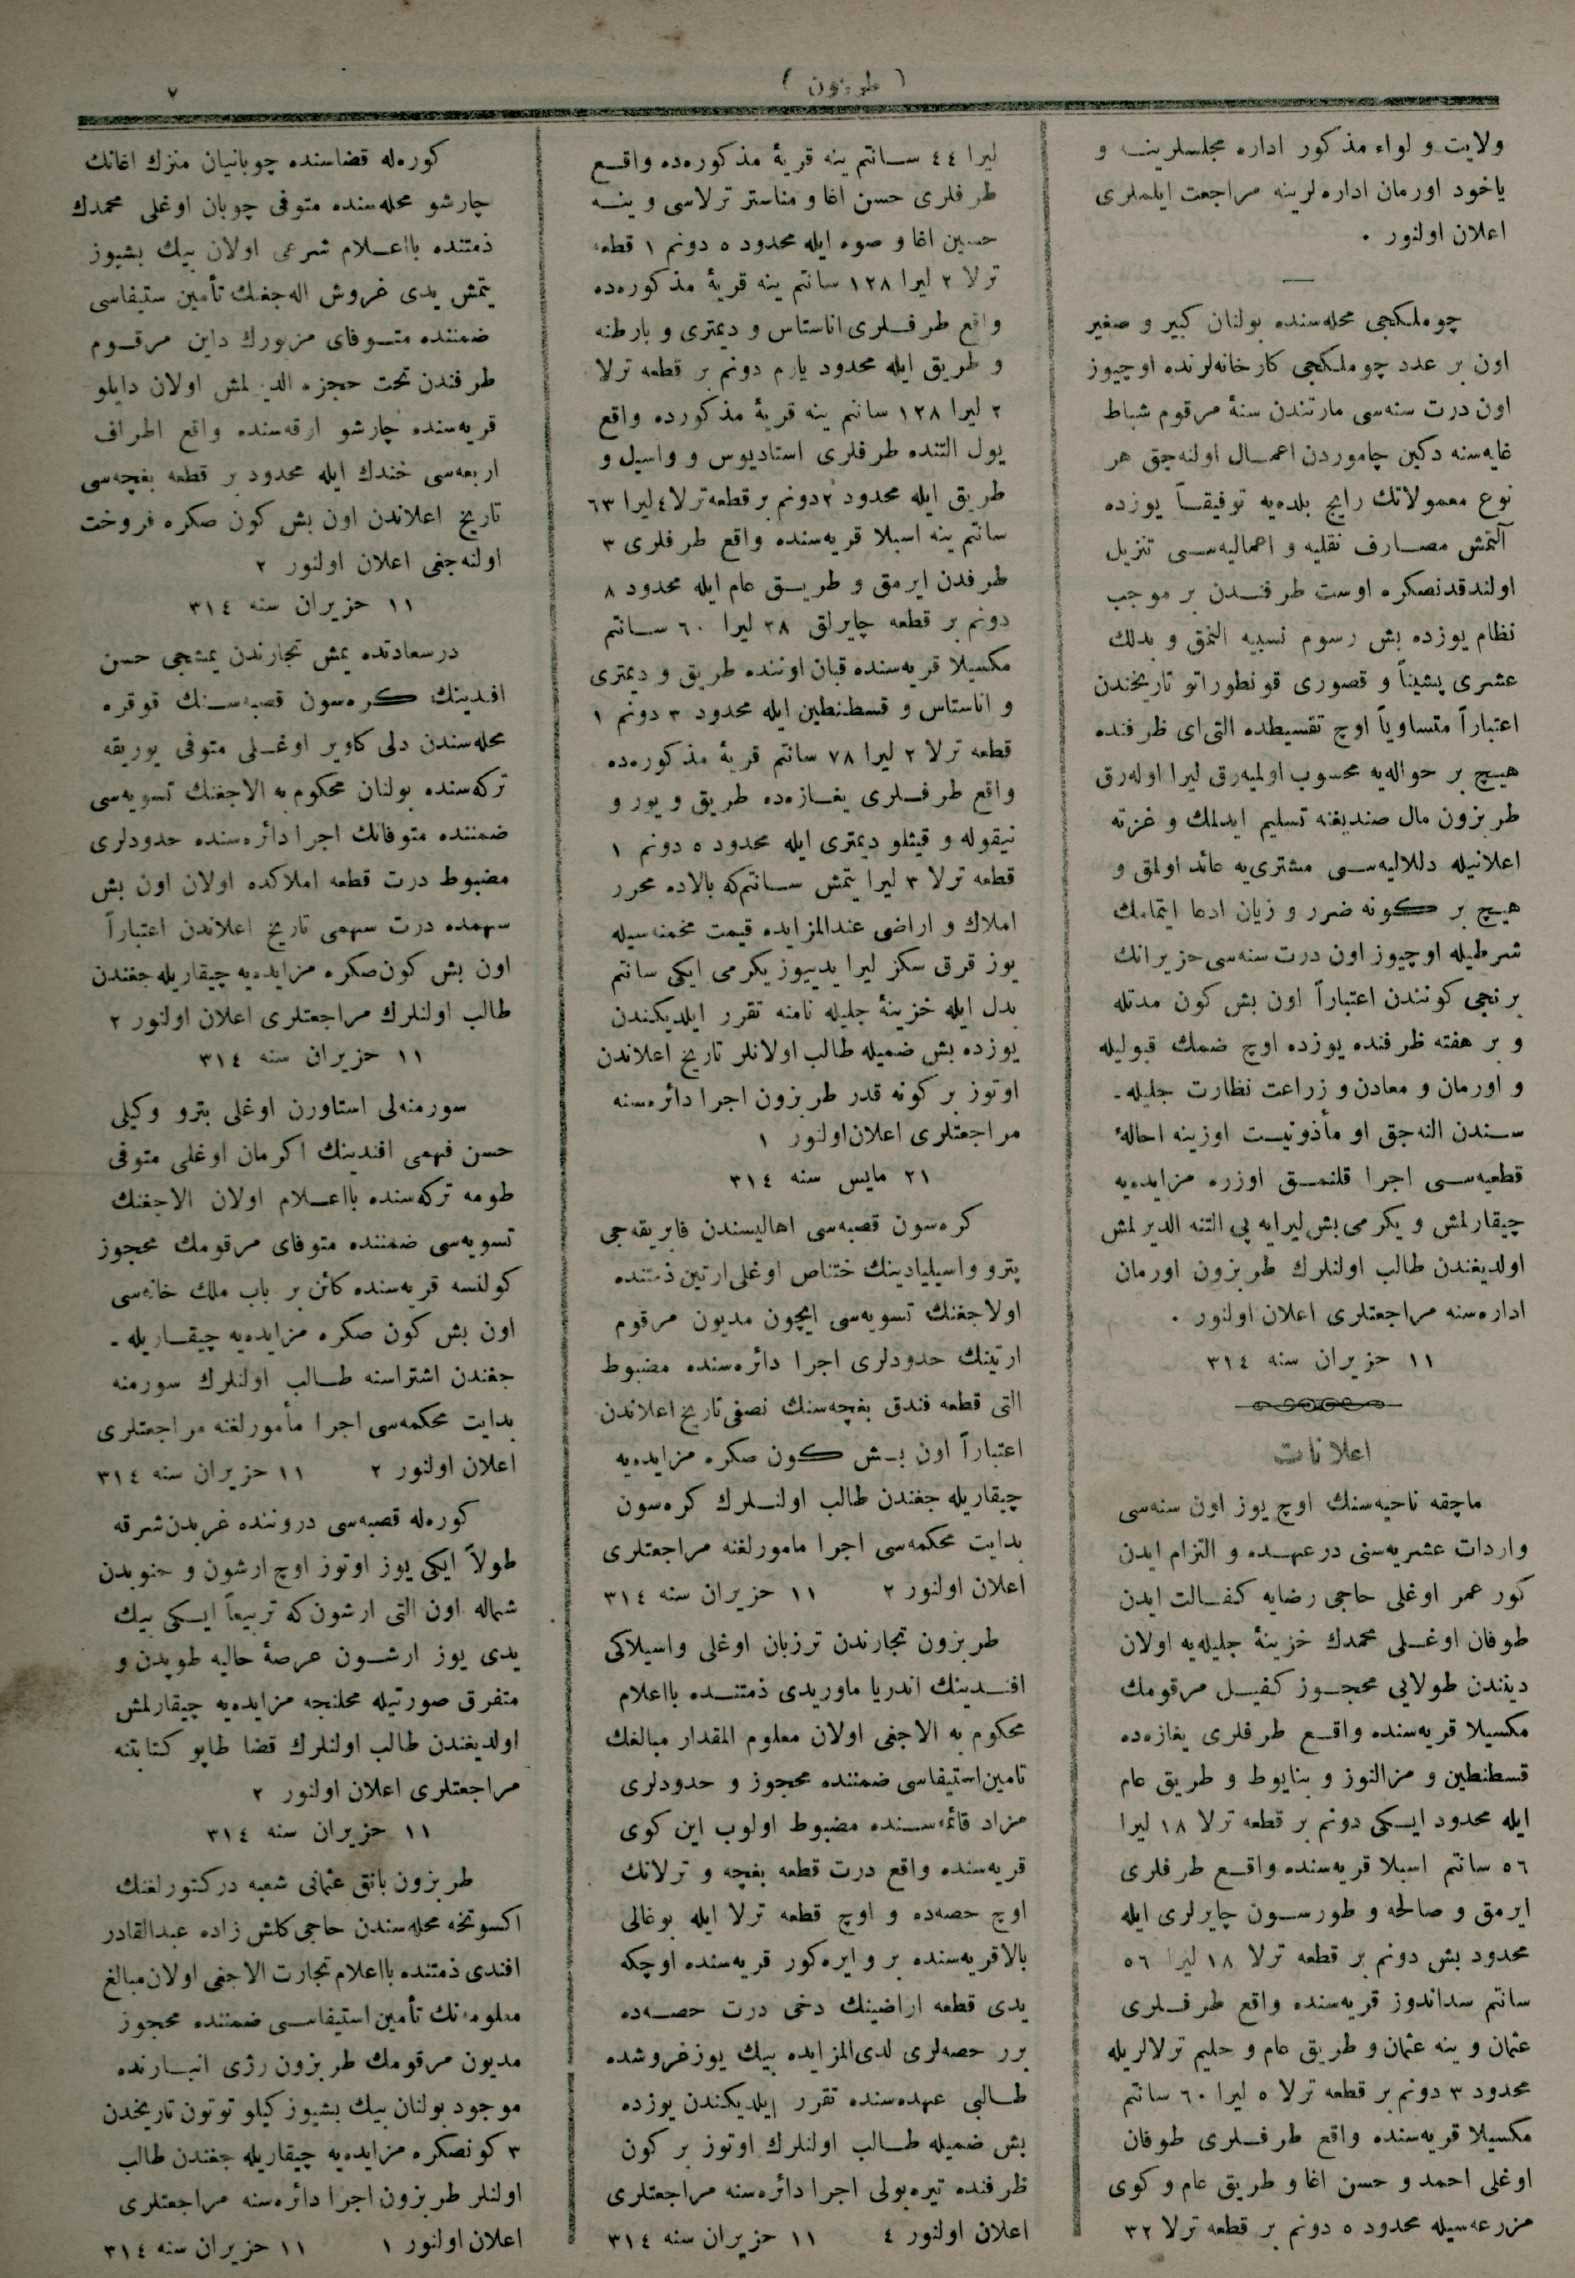 ( طربزون )
٧
ولايت و لواء مذكور اداره مجلسلرينه و
ياخود اورمان اداره لرينه مراجعت ايلملرى
اعلان اولنور .
چوملكجى محله سنده بولنان كبير و صغير
اون بر عدد چوملكجى كارخانه لرنده اوچيوز
اون درت سنه سى مارتندن سنهٔ مرقوم شباط
غايه سنه دكين چاموردن اعمال اولنه جق هر
نوع معمولاتك رايج بلده يه توفيقاً يوزده
آلتمش مصارف نقليه و اعماليه سى تنزيل
اولندقدنصكره اوست طرفندن بر موجب
نظام يوزده بش رسوم نسبيه النمق و بدلك
عشرى پشيناً و قصورى قونطوراتو تاريخندن
اعتباراً متساوياً اوچ تقسيطده التى اى ظرفنده
هيچ بر حواله يه محسوب اولميه رق ليرا اوله رق
طربزون مال صنديغنه تسليم ايدلمك و غزته
اعلانيله دلاليه سى مشترى يه عائد اولمق و
هيچ بر كونه ضرر و زيان ادعا ايتمامك
شرطيله اوچيوز اون درت سنه سى حزيرانك
برنجى كونندن اعتباراً اون بش كون مدتله
و بر هفته ظرفنده يوزده اوچ ضمك قبوليله
و اورمان و معادن و زراعت نظارت جليله -
سندن النه جق او مأذونيت اوزينه احالهٔ
قطعيه سى اجرا قلنمق اوزره مزايده يه
چيقارلمش و يكرمى بش ليرايه پى التنه الديرلمش
اولديغندن طالب اولنلرك طربزون اورمان
اداره سنه مراجعتلرى اعلان اولنور .
١١ حزيران سنه ٣١٤
اعلانات
ماچقه ناحيه سنك اوچ يوز اون سنه سى
واردات عشريه سنى درعهده و التزام ايدن
كور عمر اوغلى حاجى رضايه كفالت ايدن
طوفان اوغلى محمدك خزينهٔ جليله يه اولان
ديندن طولايى محجوز كفيل مرقومك
مكسيلا قريه سنده واقع طرفلرى يغازه ده
قسطنطين و مزالنوز و پنايوط و طريق عام
ايله محدود ايكى دونم بر قطعه ترلا ١٨ ليرا
٥٦ سانتم اسبلا قريه سنده واقع طرفلرى
ايرمق و صالحه و طورسون چايرلرى ايله
محدود بش دونم بر قطعه ترلا ١٨ ليرا ٥٦
سانتم سداندوز قريه سنده واقع طرفلرى
عثمان و ينه عثمان و طريق عام و حليم ترلالريله
محدود ٣ دونم بر قطعه ترلا ٥ ليرا ٦٠ سانتم
مكسيلا قريه سنده واقع طرفلرى طوفان
اوغلى احمد و حسن اغا و طريق عام و كوى
مزرعه سيله محدود ٥ دونم بر قطعه ترلا ٣٢
ليرا ٤٤ سانتم ينه قريهٔ مذكوره ده واقع
طرفلرى حسن اغا و مناستر ترلاسى و ينه
حسين اغا و صوه ايله محدود ٥ دونم ١ قطعه
ترلا ٢ ليرا ١٢٨ سانتم ينه قريهٔ مذكوره ده
واقع طرفلرى اناستاس و ديمترى و بارطنه
و طريق ايله محدود يارم دونم بر قطعه ترلا
٢ ليرا ١٢٨ سانتم ينه قريهٔ مذكورده واقع
يول التنده طرفلرى استاديوس و واسيل و
طريق ايله محدود ٢ دونم بر قطعه ترلا ٤ ليرا ٦٣
سانتم ينه اسبلا قريه سنده واقع طرفلرى ٣
طرفدن ايرمق و طريق عام ايله محدود ٨
دونم بر قطعه چايرلق ٣٨ ليرا ٦٠ سانتم
مكسيلا قريه سنده قبان اوننده طريق و ديمترى
و اناستاس و قسطنطين ايله محدود ٣ دونم ١
قطعه ترلا ٢ ليرا ٧٨ سانتم قريهٔ مذكوره ده
واقع طرفلرى يغازه ده طريق و يور و
نيقوله و قيثلو ديمترى ايله محدود ٥ دونم ١
قطعه ترلا ٣ ليرا يتمش سانتم كه بالاده محرر
املاك و اراضى عندالمزايده قيمت مخمنه سيله
يوز قرق سكز ليرا يدييوز يكرمى ايكى سانتم
بدل ايله خزينهٔ جليله نامنه تقرر ايلديكندن
يوزده بش ضميله طالب اولانلر تاريخ اعلاندن
اوتوز بر كونه قدر طربزون اجرا دائره سنه
مراجعتلرى اعلان اولنور ١
٢١ مايس سنه ٣١٤
كره سون قصبه سى اهاليسندن فابريقه جى
پترو واسيليادينك ختناص اوغلى ارتين ذمتنده
اولاجغنك تسويه سى ايچون مديون مرقوم
ارتينك حدودلرى اجرا دائره سنده مضبوط
التى قطعه فندق بغچه سنك نصفى تاريخ اعلاندن
اعتباراً اون بش كون صكره مزايده يه
چيقاريله جغندن طالب اولنلرك كره سون
بدايت محكمه سى اجرا مامورلغنه مراجعتلرى
اعلان اولنور ٢ ١١ حزيران سنه ٣١٤
طربزون تجارندن ترزبان اوغلى واسيلاكى
افندينك اندريا ماوريدى ذمتنده بااعلام
محكوم به الاجغى اولان معلوم المقدار مبالغك
تامين استيفاسى ضمننده محجوز و حدودلرى
مزاد قائمه سنده مضبوط اولوب اين كوى
قريه سنده واقع درت قطعه بغچه و ترلانك
اوچ حصه ده و اوچ قطعه ترلا ايله بوغالى
بالاقريه سنده بر و ايره كور قريه سنده اوچكه
يدى قطعه اراضينك دخى درت حصه ده
برر حصه لرى لدى المزايده بيك يوز غروشده
طالبى عهده سنده تقرر ايلديكندن يوزده
بش ضميله طالب اولنلرك اوتوز بر كون
ظرفنده تيره بولى اجرا دائره سنه مراجعتلرى
اعلان اولنور ٤ ١١ حزيران سنه ٣١٤
كوره له قضاسنده چوبانيان منزك اغانك
چارشو محله سنده متوفى چوبان اوغلى محمدك
ذمتنده بااعلام شرعى اولان بيك بشيوز
يتمش يدى غروش اله جغنك تأمين ستيفاسى
ضمننده متوفاى مزبورك داين مرقوم
طرفندن تحت حجزه الديرلمش اولان دايلو
قريه سنده چارشو ارقه سنده واقع اطراف
اربعه سى خندك ايله محدود بر قطعه بغچه سى
تاريخ اعلاندن اون بش كون صكره فروخت
اولنه جغى اعلان اولنور ٢
١١ حزيران سنه ٣١٤
درسعادتده يمش تجارندن يمشجى حسن
افدينك كره سون قصبه سنك قوقره
محله سندن دلى كاوير اوغلى متوفى يوريقه
تركه سنده بولنان محكوم به الاجغنك تسويه سى
ضمننده متوفانك اجرا دائره سنده حدودلرى
مضبوط درت قطعه املاكده اولان اون بش
سهمده درت سهمى تاريخ اعلاندن اعتباراً
اون بش كون صكره مزايده يه چيقاريله جغندن
طالب اولنلرك مراجعتلرى اعلان اولنور ٢
١١ حزيران سنه ٣١٤
سورمنه لى استاورن اوغلى پترو وكيلى
حسن فهمى افندينك اكرمان اوغلى متوفى
طومه تركه سنده بااعلام اولان الاجغنك
تسويه سى ضمننده متوفاى مرقومك محجوز
كولنسه قريه سنده كائن بر باب ملك خانه سى
اون بش كون صكره مزايده يه چيقاريله -
جغندن اشتراسنه طالب اولنلرك سورمنه
بدايت محكمه سى اجرا مأمورلغنه مراجعتلرى
اعلان اولنور ٢ ١١ حزيران سنه ٣١٤
كوره له قصبه سى دروننده غربدن شرقه
طولاً ايكى يوز اوتوز اوچ ارشون و جنوبدن
شماله اون التى ارشون كه تربيعاً ايكى بيك
يدى يوز ارشون عرصهٔ خاليه طوپدن و
متفرق صورتيله محلنجه مزايده يه چيقارلمش
اولديغندن طالب اولنلرك قضا طاپو كتابتنه
مراجعتلرى اعلان اولنور ٢
١١ حزيران سنه ٣١٤
طربزون بانق عثمانى شعبه دركتورلغنك
اكسوتخه محله سندن حاجى كلش زاده عبدالقادر
افندى ذمتنده بااعلام تجارت الاجغى اولان مبالغ
معلومه نك تأمين استيفاسى ضمننده محجوز
مديون مرقومك طربزون رژى انبارنده
موجود بولنان بيك بشيوز كيلو توتون تاريخدن
٣ كونصكره مزايده يه چيقاريله جغندن طالب
اولنلر طربزون اجرا دائره سنه مراجعتلرى
اعلان اولنور ١ ١١ حزيران سنه ٣١٤